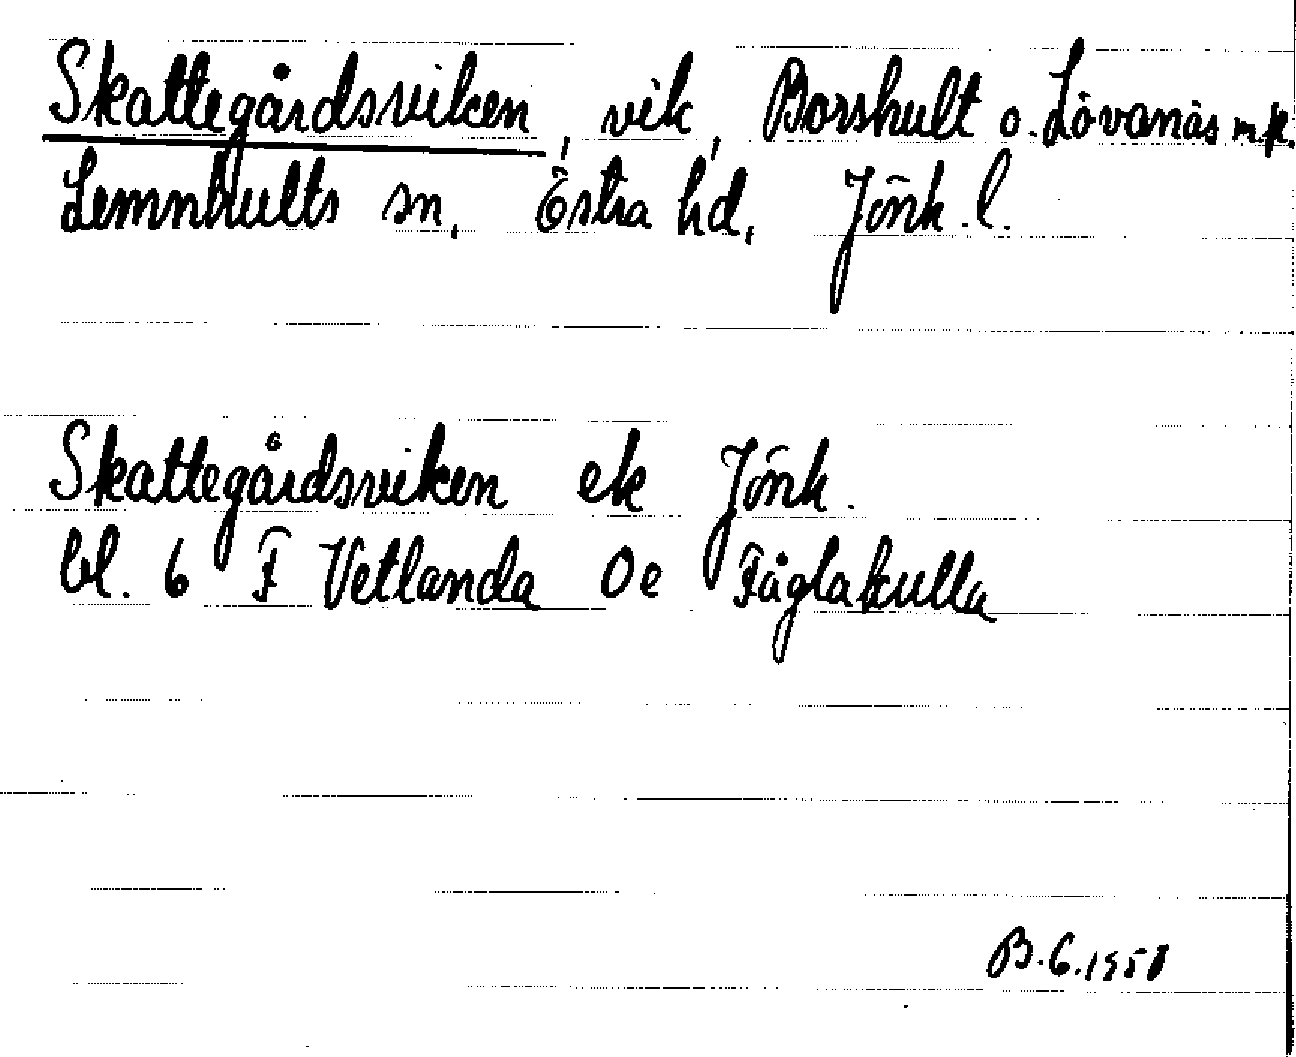 Skattegårdsviken, vik, Borshult o. Lövanäs mk.
Lemnhults sn, Östra hd, Jönk.l.
Skattegårdsviken ek Jönk.
bl. 6 F Vetlanda 0e Fåglakulla
B.G.1958